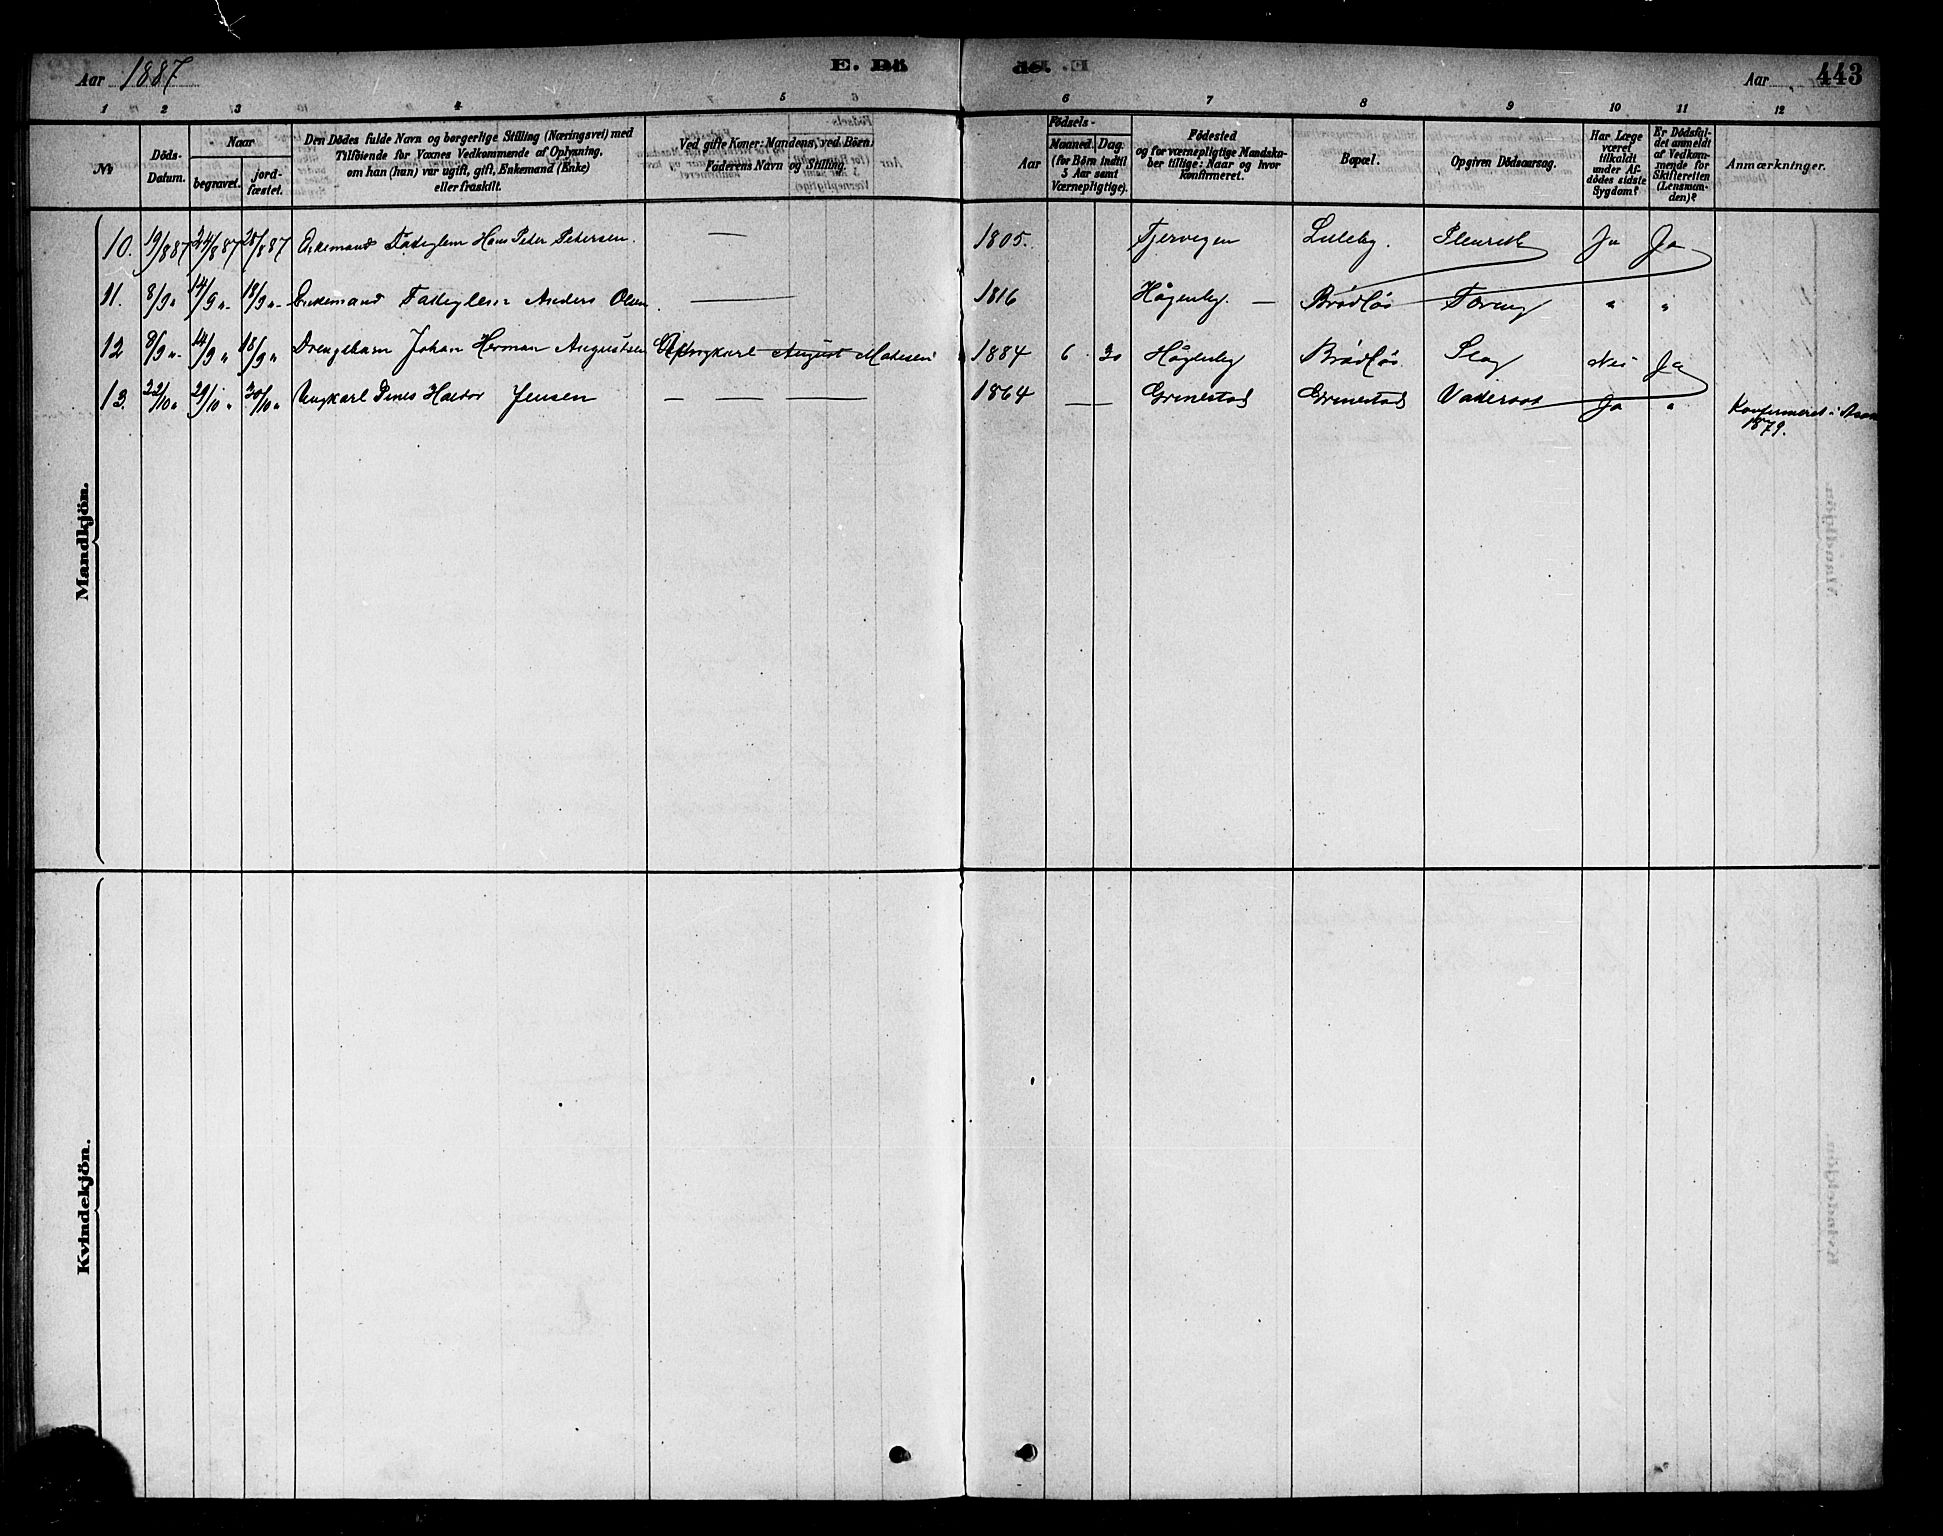 Aar 1887 E. Dö de. Aar 443
1 2 3 4 5 6 7 8 9 10 11 12
№
Döds-Datum.
Naar
begravet.
jord-fæstet.
Den Dödes fulde Navn og borgerlige Stilling (Næringsvei) med
Tilföiende for Voxnes Vedkommende af Oplysning,
om han (hun) var ugift, gift, Enkemand (Enke)
eller fraskilt.
Ved gifte Koner: Mandens, ved Börn:
Faderens Navn og Stilling.
Födsels-
Aar
Maaned. Dag.
(for Börn indtil
5 Aar samt
Værnepligtige).
Födested
og for værnepligtige Mandska-
ber tillige: Naar og hvor
konfirmeret.
Bopæl.
Opgiven Dödsaarsag.
Har Læge
været
tilkaldt
under Af-
dödes sidste
Sygdom?
Er Dödsfal-
det anmeldt
af Vedkom-
mende for
Skifteretten
(Lensman-
den)?
Anmærkninger.
Mandkjön.
10. 19/8 87 24/8 87 28/8 87 Enkemand Hans Peder Pedersen. — 1805. Lilleby. Ja Ja
11. 8/9 " 14/9 " 18/9 " Enkemand Anders Olsen — 1816 Hågenby. — Brødløs " "
12 8/9 " 14/9 " 18/9 " Drengebarn Johan Herman Augustsen August Madsen 1884 6 30 Hågenby Brødløs. Slag Nei Ja
13. 22/10 " 29/10 " 30/10 " Ungkarl Haldor Jensen — — — 1864 — Grinestad Grinestad Vattersot Ja " Konfirmeret i
1879.
Kvindekjön.